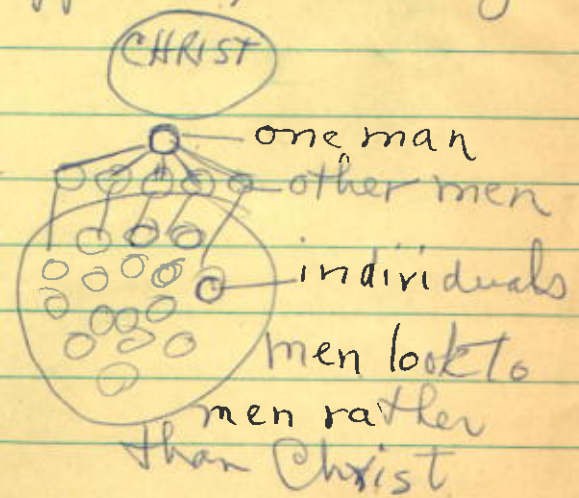 CHRIST
one man
other men
individuals
men look to
men rather
than Christ